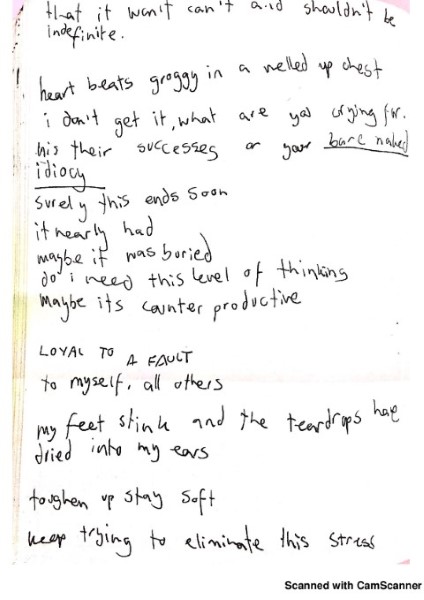 that it won't can't and shouldn't be
indefinite.
heart beats groggy in a welled up chest
i don't get it, what are you crying for.
his their successes or your bare naked
idiocy
surely this ends soon
it nearly had
maybe if was buried
do i need this level of thinking
maybe its counter productive
LOYAL TO A FAULT
to myself, all others
my feet stink and the teardrops have
dried into my ears
toughen up stay soft
keep trying to eliminate this stress
Scanned with CamScanner